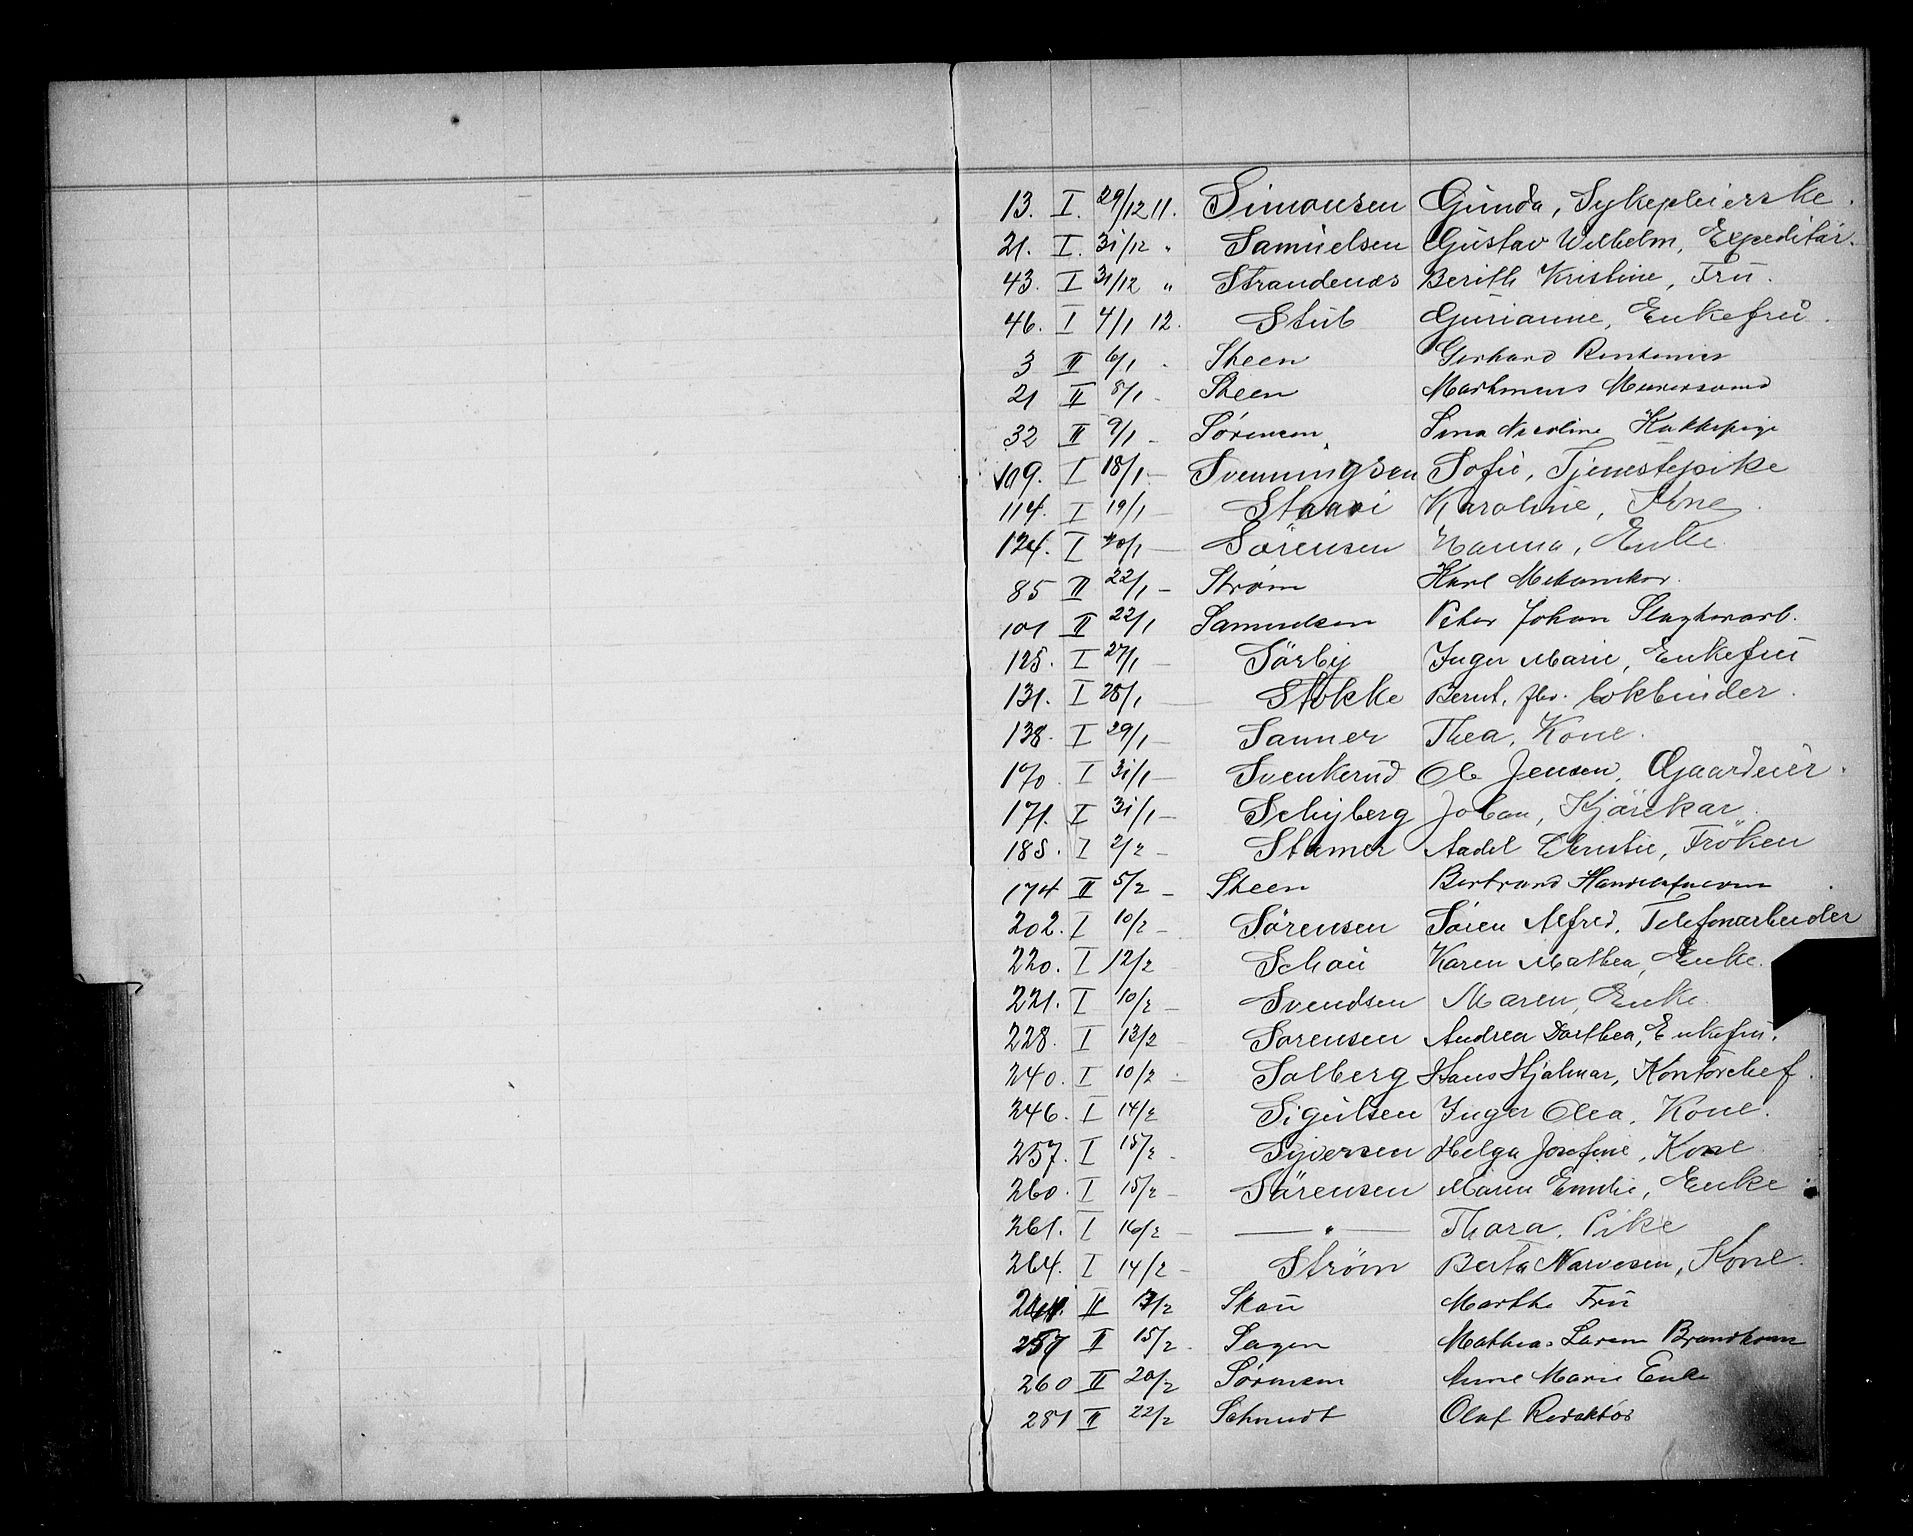 13. I. 29/12 11. Simonsen Gunda, Sykepleierske.
21. I. 31/12 " Samuelsen Gustav Wilhelm, Expeditør.
43. I 31/12 " Strandenæs Berith Kristine, Fru.
46. I 4/1 12. Stub Gurianne, Enkefru.
3 II 6/1 - Steen Gerhard Rentenier
21 II 8/1 - Steen Murersvend
32 II 9/1 - Sørensen Nicoline
109. I 18/1 - Svenningsen Sofie, Tjenestepike
114. I 19/1 - Karoline, Kone.
124. I 20/1 - Sørensen Hanna, Enke.
85 II 22/1 - Strøm Karl Mekaniker.
101 II 22/1 Samuelsen Peter Johan Slagterarb.
125. I 27/1 - Sørby Inger Marie, Enkefru
131. I 28/1 - Stokke Bernt, fhv. bokbinder.
138. I 29/1 - Sanner Thea, Kone.
170. I 31/1 - Svenkerud Ole Jensen, Gaardeier.
171. I 31/1 - Schyberg Johan, Kjørekar.
185. I 2/2 - Stamer Aadel Christie, Frøken
174 II 5/2 - Steen Bertrand
202. I 10/2 - Sørensen Søren Alfred, Telefonarbeider
220. I 12/2 Schou Karen Mathea, Enke.
221. I 10/2 - Svendsen Maren, Enke.
228. I 13/2 - Sørensen Andrea Dorthea, Enkefru.
240. I 10/2 - Solberg Hans Hjalmar, Kontorchef.
246. I 14/2 Sigurdsen Inger Olea, Kone.
257. I 15/2 - Syversen Helga Josefine, Kone.
260. I 15/2 - Sørensen Maren Emilie, Enke.
261. I 16/2 - — " — Thora, Pike
264. I 14/2 - Strøm Berta Narvesen, Kone.
II 13/2 Skau Marthe Fru
257 II 15/2 - Sagen Mathias Laren
260 II 20/2 Sørensen Anne Marie Enke
281 II 22/2 Schmidt Olaf Redaktør